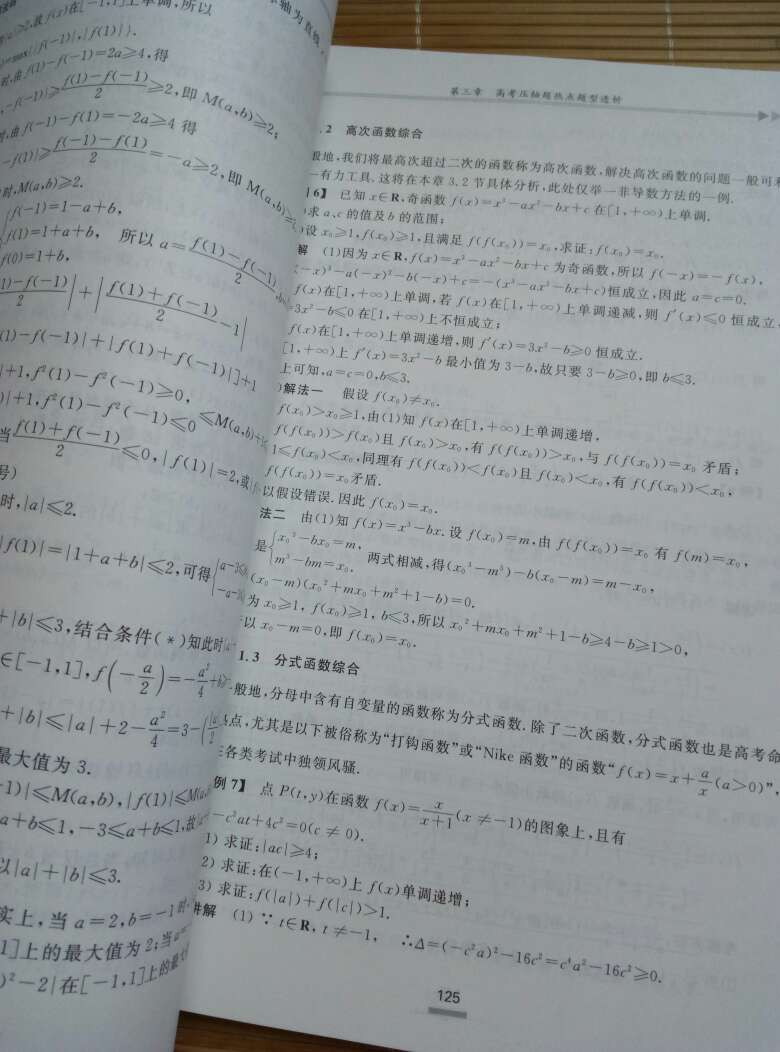 在[-1,1]上单调,所以
轴为直线
f(1)-f(-1)=2a≥4,得
f(1)-f(-1)/2≥2,即 M(a,b)≥2;
时,由 f(-1)-f(1)=-2a≥4 得
f(-1)-f(1)/2=-a≥2,即 M(a,b)≥
时,M(a,b)≥2.
f(-1)=1-a+b,
f(1)=1+a+b, 所以 a=f(1)-f(-1)/2,
f(0)=1+b,
1)-f(-1)/2|+|f(1)+f(-1)/2-1|
(1)-f(-1)|+|f(1)+f(-1)|]+1
|+1,f²(1)-f²(-1)≥0,
)|+1,f²(1)-f²(-1)≤0 ≤M(a,b)+
当f(1)+f(-1)/2≤0,|f(1)|=2,或
号)
时,|a|≤2.
|f(1)|=|1+a+b|≤2,可得
+|b|≤3,结合条件(*)知此时
∈[-1,1],f(-a/2)=-a²/4+b
+|b|≤|a|+2-a²/4=3-(|a|/2
最大值为 3.
-1)|≤M(a,b),|f(1)|≤M(a
a+b≤1,-3≤a+b≤1,故
以|a|+|b|≤3.
实上,当 a=2,b=-1 时
1]上的最大值为 2;当
)²-2|在[-1,1]上的最大
第三章 高考压轴题热点题型透析
.2 高次函数综合
般地,我们将最高次超过二次的函数称为高次函数,解决高次函数的问题一般可利
一有力工具.这将在本章 3.2 节具体分析,此处仅举一非导数方法的一例.
6】 已知 x∈R,奇函数 f(x)=x³-ax²-bx+c 在[1,+∞)上单调.
求 a,c 的值及 b 的范围;
设 x₀≥1,f(x₀)≥1,且满足 f(f(x₀))=x₀,求证:f(x₀)=x₀.
解 (1)因为 x∈R,f(x)=x³-ax²-bx+c 为奇函数,所以 f(-x)=-f(x),
(-x)³-a(-x)²-b(-x)+c=-(x³-ax²-bx+c)恒成立,因此 a=c=0.
f(x)在[1,+∞)上单调,若 f(x)在[1,+∞)上单调递减,则 f′(x)≤0 恒成立
=3x²-b≤0 在[1,+∞)上不恒成立;
f(x)在[1,+∞)上单调递增,则 f′(x)=3x²-b≥0 恒成立.
[1,+∞)上 f′(x)=3x²-b 最小值为 3-b,故只要 3-b≥0,即 b≤3.
上可知,a=c=0,b≤3.
)解法一 假设 f(x₀)≠x₀.
f(x₀)>x₀≥1,由(1)知 f(x)在[1,+∞)上单调递增,
f(f(x₀))>f(x₀)且 f(x₀)>x₀,有 f(f(x₀))>x₀,与 f(f(x₀))=x₀ 矛盾;
1≤f(x₀)<x₀,同理有 f(f(x₀))<f(x₀)且 f(x₀)<x₀,有 f(f(x₀))<x₀,
f(f(x₀))=x₀矛盾.
以假设错误.因此 f(x₀)=x₀.
法二 由(1)知 f(x)=x³-bx.设 f(x₀)=m,由 f(f(x₀))=x₀ 有 f(m)=x₀,
是{x₀³-bx₀=m, m³-bm=x₀. 两式相减,得(x₀³-m³)-b(x₀-m)=m-x₀,
(x₀-m)(x₀²+mx₀+m²+1-b)=0.
为 x₀≥1, f(x₀)≥1, b≤3,所以 x₀²+mx₀+m²+1-b≥4-b≥1>0,
以 x₀-m=0,即 f(x₀)=x₀.
1.3 分式函数综合
般地,分母中含有自变量的函数称为分式函数.除了二次函数,分式函数也是高考命
点,尤其是以下被俗称为“打钩函数”或“Nike 函数”的函数“f(x)=x+a/x(a>0)”,
各类考试中独领风骚.
例 7】 点 P(t,y)在函数 f(x)=x/x+1(x≠-1)的图象上,且有
-c²at+4c²=0(c≠0).
1) 求证:|ac|≥4;
2) 求证:在(-1,+∞)上 f(x)单调递增;
3) 求证:f(|a|)+f(|c|)>1.
讲解 (1) ∵ t∈R, t≠-1, ∴Δ=(-c²a)²-16c²=c⁴a²-16c²≥0.
125